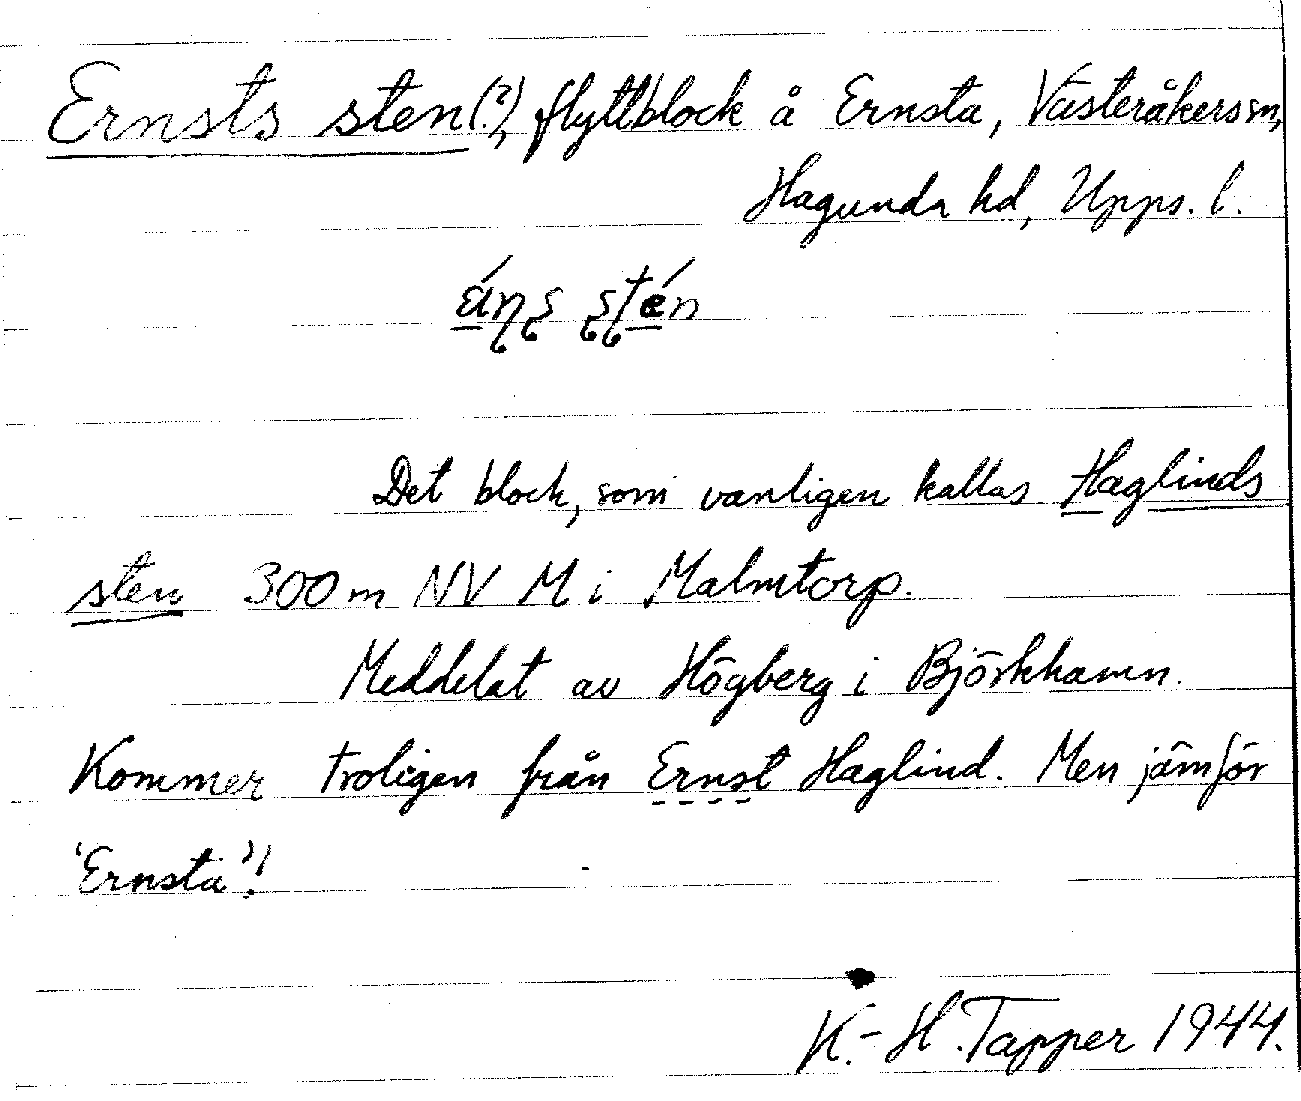 Ernsts sten(?), flyttblock å Ernsta, Västeråkers sn,
Hagunda hd, Upps. l.
Det block, som vanligen kallas Haglinds
sten 300 m NV M i Malmtorp.
Meddelat av Högberg i Björkhamn.
Kommer troligen från Ernst Haglind. Men jämför
'Ernsta'!
K.-H. Tapper 1944.